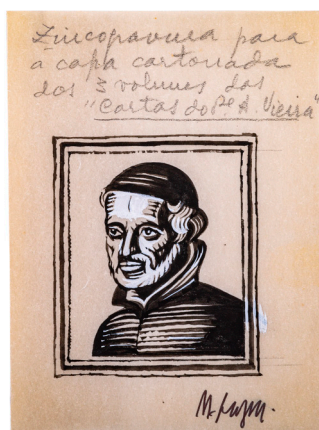 Zincogravura para
a capa cartonada
dos 3 volumes das
"Cartas do Pe A. Vieira"